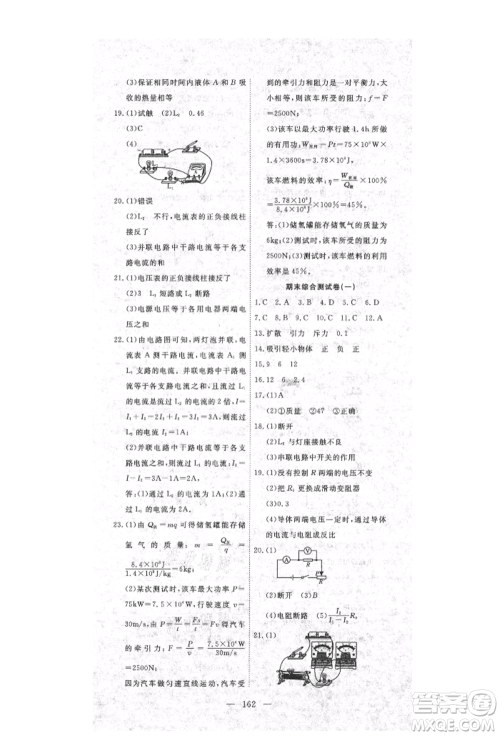 (3)保证相同时间内液体 A 和 B 吸
收的热量相等
19.(1)试触 (2)L₂ 0.46
(3)C
(4)
20.(1)错误
(2)L₂ 不行,电流表的正负接线柱
接反了
(3)并联电路中干路电流等于各支
路电流之和
21.(1)电压表的正负接线柱接反了
(2)3 L₁ 短路 L₂ 断路
(3)串联电路电源两端电压等于各
用电器两端电压之和
22.(1)由电路图可知,两灯泡并联,电
流表 A 测干路电流,电流表 A₁ 测
L₁支路的电流。因为并联电路中
干路电流等于各支路电流之和,所
以,流过灯泡 L₂ 的电流 I₂ = I −
I₁=3A−1A=2A
(2)并联电路中干路电流等于各支
路电流之和,即 I=I₁+I₂,则 I₁=
I−I₂=3A−2A=1A
答:(1)通过 L₂ 的电流为 2A;(2)
电流表 A₁ 的示数为 1A。
23.(1)由 Q放=mq 可得储氢罐能存储
氢气的质量:m=Q放/q=
8.4×10⁸J/1.4×10⁸J/kg=6kg;
(2)基本测试时,该车的功率 P=
75kW=7.5×10⁴W,行驶速度 v=
30m/s,由 P=W/t=Fs/t=Fv 得汽车
的牵引力:F=P/v=7.5×10⁴W/30m/s
=2500N;
因为汽车做匀速直线运动,汽车受
到的牵引力和阻力是一对平衡力,大
小相等,则该车所受的阻力:f=F
=2500N;
(3)该车以最大功率行驶 1.4h 所做
的有用功:W=Pt=7.5×10⁴W×
1.4×3600s=3.78×10⁸J,
该车燃料的效率:η=W/Q放×100%=
3.78×10⁸J/8.4×10⁸J×100%=45%。
答:(1)储氢罐能存储氢气的质量为
6kg;(2)测试时,该车所受的阻力为
2500N;(3)该车燃料的效率为
45%。
期末综合测试卷(一)
1.C 2.C 3.D 4.B 5.A 6.D
7.C 8.D 9.C 10.A 11.D 12.D
13.扩散 引力 斥力 0.1
14.吸引轻小物体 正 负 正
15.9 6 12
16.12 6 2.4
17.(1)A
(2)①质量 ②47 ③不可靠
18.(1)断开
(2)L₂与灯座接触不良
(3)串联电路中开关的作用
19.(1)没有控制 R 两端的电压不变
(2)把电阻 R₀ 换成滑动变阻器
(3)0.3
(4)导体两端电压一定时,导体中
的电流与电阻成反比
20.(1)
(2)断开 (3)B
(4)电阻断路
21.(1)
162